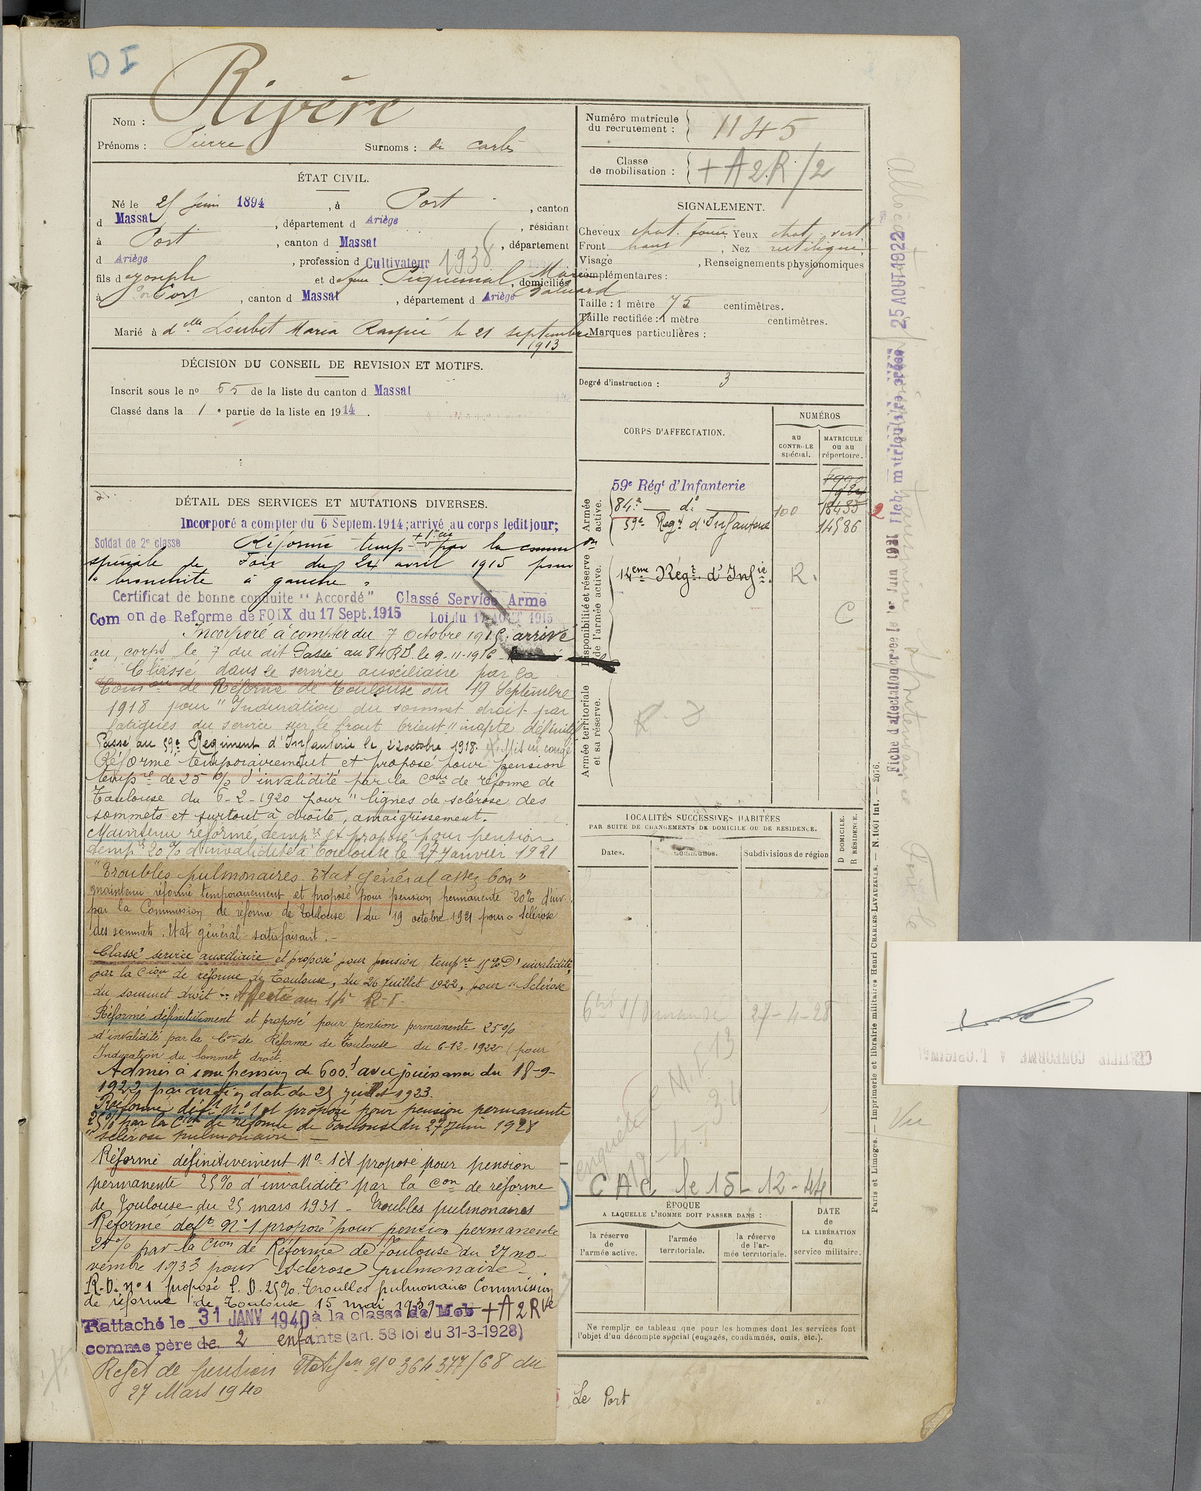 DI
Nom : Rivère
Prénoms : Pierre Surnoms : di carlès
ÉTAT CIVIL.
Né le 25 juin 1894, à Port, canton
d Massat, département d Ariège, résidant
à Port, canton d Massat, département
d Ariège, profession d Cultivateur 1938
fils d Joseph et d Piquemal Marie, domiciliés
à Port, canton d Massat, département d Ariège
Marié à d'elle Loubet Maria Raspié le 21 septembre
1913
DÉCISION DU CONSEIL DE REVISION ET MOTIFS.
Inscrit sous le n° 55 de la liste du canton d Massat
Classé dans la 1e partie de la liste en 1914.
DÉTAIL DES SERVICES ET MUTATIONS DIVERSES.
Incorporé a compter du 6 Septem. 1914; arrivé au corps ledit jour;
Soldat de 2e classe Réformé temp par la comm on
spéciale de Foix du 24 avril 1915 pour
"bronchite à gauche"
Certificat de bonne conduite "Accordé" Classé Service Armé
Com on de Reforme de FOIX du 17 Sept. 1915 Loi du 17 AOUT 1915
Incorporé à compter du 7 Octobre 1915 arrivé
au corps le 7 du dit Passé au 84 R.I. le 9-11-1916
Classé dans le service auxiliaire par la
Com on de Réforme de Toulouse du 19 Septembre
1918 pour "Induration du sommet droit par
fatigues du service sur le front Orient" inapte définitif
Passé au 59e Régiment d'Infanterie le 22 octobre 1918. Mis en congé
Réformé temporairement et proposé pour pension
temp re de 25 % d'invalidité par la Com de réforme de
Toulouse du 6-2-1920 pour "lignes de sclérose des
sommets et surtout à droite, amaigrissement.
Maintenu réformé temp re et proposé pour pension
temp re 20% d'invalidité à Toulouse le 27 janvier 1921
"Troubles pulmonaires. Etat général assez bon"
maintenu réformé temporairement et proposé pour pension permanente 20% d'inv
par la Commission de réforme de Toulouse du 19 octobre 1921 pour "Sclérose
des sommets. Etat général satisfaisant. -
Classé service auxiliaire et proposé pour pension temp re 15% d'invalidité
par la C ion de réforme de Toulouse, du 20 juillet 1922, pour "Sclérose
du sommet droit" Affecté au 14e R.I.
Réformé définitivement et proposé pour pension permanente 25%
d'invalidité par la C on de Réforme de Toulouse du 6-12-1922 (pour
Induration du sommet droit.
Admis à une pension de 600f avec jouissance du 18-9-
1922 par arrêté en date du 25 juillet 1923.
Réformé déf t n°1 et proposé pour pension permanente
25% par la C on de réforme de Toulouse du 27 juin 1928
"sclérose pulmonaire -
Réformé définitivement N° 1 et proposé pour pension
permanente 25% d'invalidité par la C on de réforme
de Toulouse du 25 mars 1931 - Troubles pulmonaires
Réformé def t N°1 proposé pour pension permanente
25% par la C ion de Réforme de Toulouse du 27 no-
vembre 1933 pour sclérose pulmonaire -
R.D. n°1 proposé P.D. 25% Troubles pulmonaires Commission
de réforme de Toulouse 15 mai 1939
Rattaché le 31 JANV 1940 à la classe de Mob +A2Rve
comme père de 2 enfants (art. 58 loi du 31-3-1928)
Rejet de pension N° 364.377/68 du
27 Mars 1940
Numéro matricule
du recrutement : 1145
Classe
de mobilisation : +A2R/2
SIGNALEMENT.
Cheveux chat. foncé Yeux chat. vert
Front haut Nez rectiligne
Visage , Renseignements physionomiques
complémentaires :
Taille : 1 mètre 75 centimètres.
Taille rectifiée : 1 mètre centimètres.
Marques particulières :
Degré d'instruction : 3
CORPS D'AFFECTATION.
NUMÉROS
AU CONTRÔLE spécial.
MATRICULE ou au répertoire.
Armée active.
59e Régt d'Infanterie
84e d° 100 18435
59e Regt d'Infanterie 14586
2
Disponibilité et réserve de l'armée active.
14eme Régt d'Infie. R.
C
Armée territoriale et sa réserve.
LOCALITÉS SUCCESSIVES HABITÉES
PAR SUITE DE CHANGEMENTS DE DOMICILE OU DE RÉSIDENCE.
Dates. Communes. Subdivisions de région D DOMICILE. R RÉSIDENCE.
27-4-28
enquête
CAC le 15-12-44
ÉPOQUE
A LAQUELLE L'HOMME DOIT PASSER DANS :
DATE de LA LIBÉRATION du service militaire.
la réserve de l'armée active. l'armée territoriale. la réserve de l'armée territoriale.
Ne remplir ce tableau que pour les hommes dont les services font
l'objet d'un décompte spécial (engagés, condamnés, omis, etc.).
Le Port
Paris et Limoges. — Imprimerie et librairie militaires Henri CHARLES-LAVAUZELLE. — N. 1001 int. — 2076.
25 AOUT 1922
Vu
CERTIFIÉ CONFORME A L'ORIGINAL